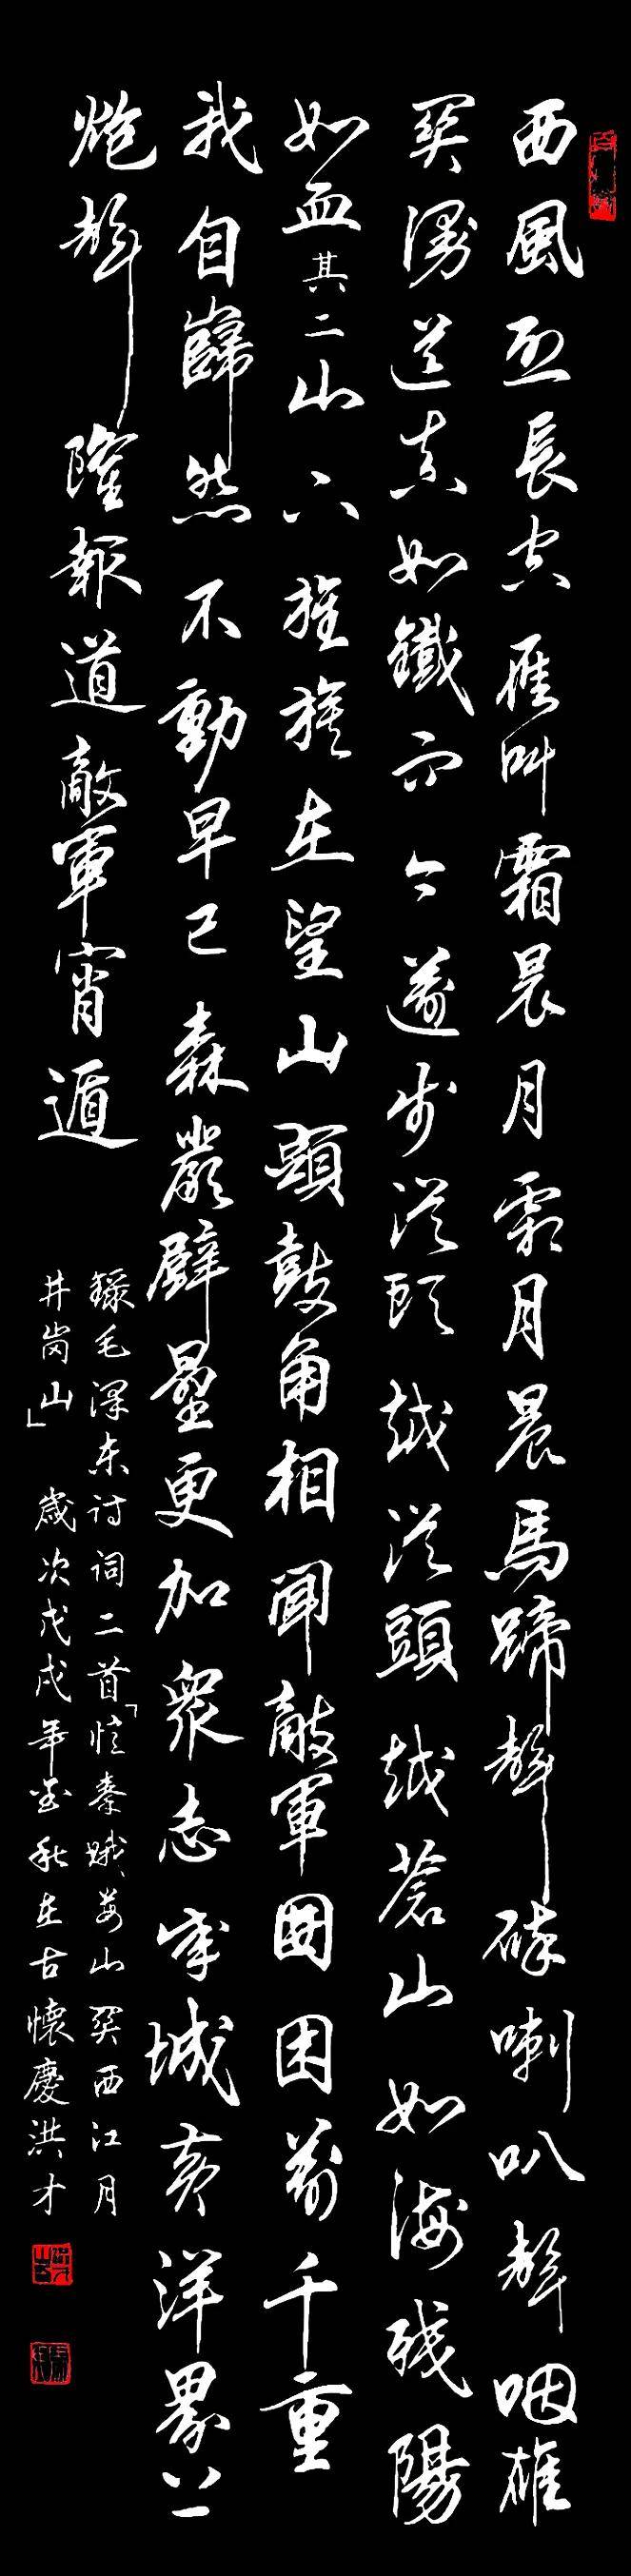 西風烈長空雁叫霜晨月霜月晨馬蹄聲碎喇叭聲咽雄
関漫道真如鐵而今邁步從頭越從頭越蒼山如海殘陽
如血其二山下旌旗在望山顛鼓角相聞敵軍圍困萬千重
我自巋然不動早已森嚴壁壘更加眾志成城黃洋界上
炮聲隆報道敵軍宵遁
錄毛澤东詩詞二首「憶秦娥、婁山関西江月
井崗山」 歲次戊戌年金秋在古懷慶洪才